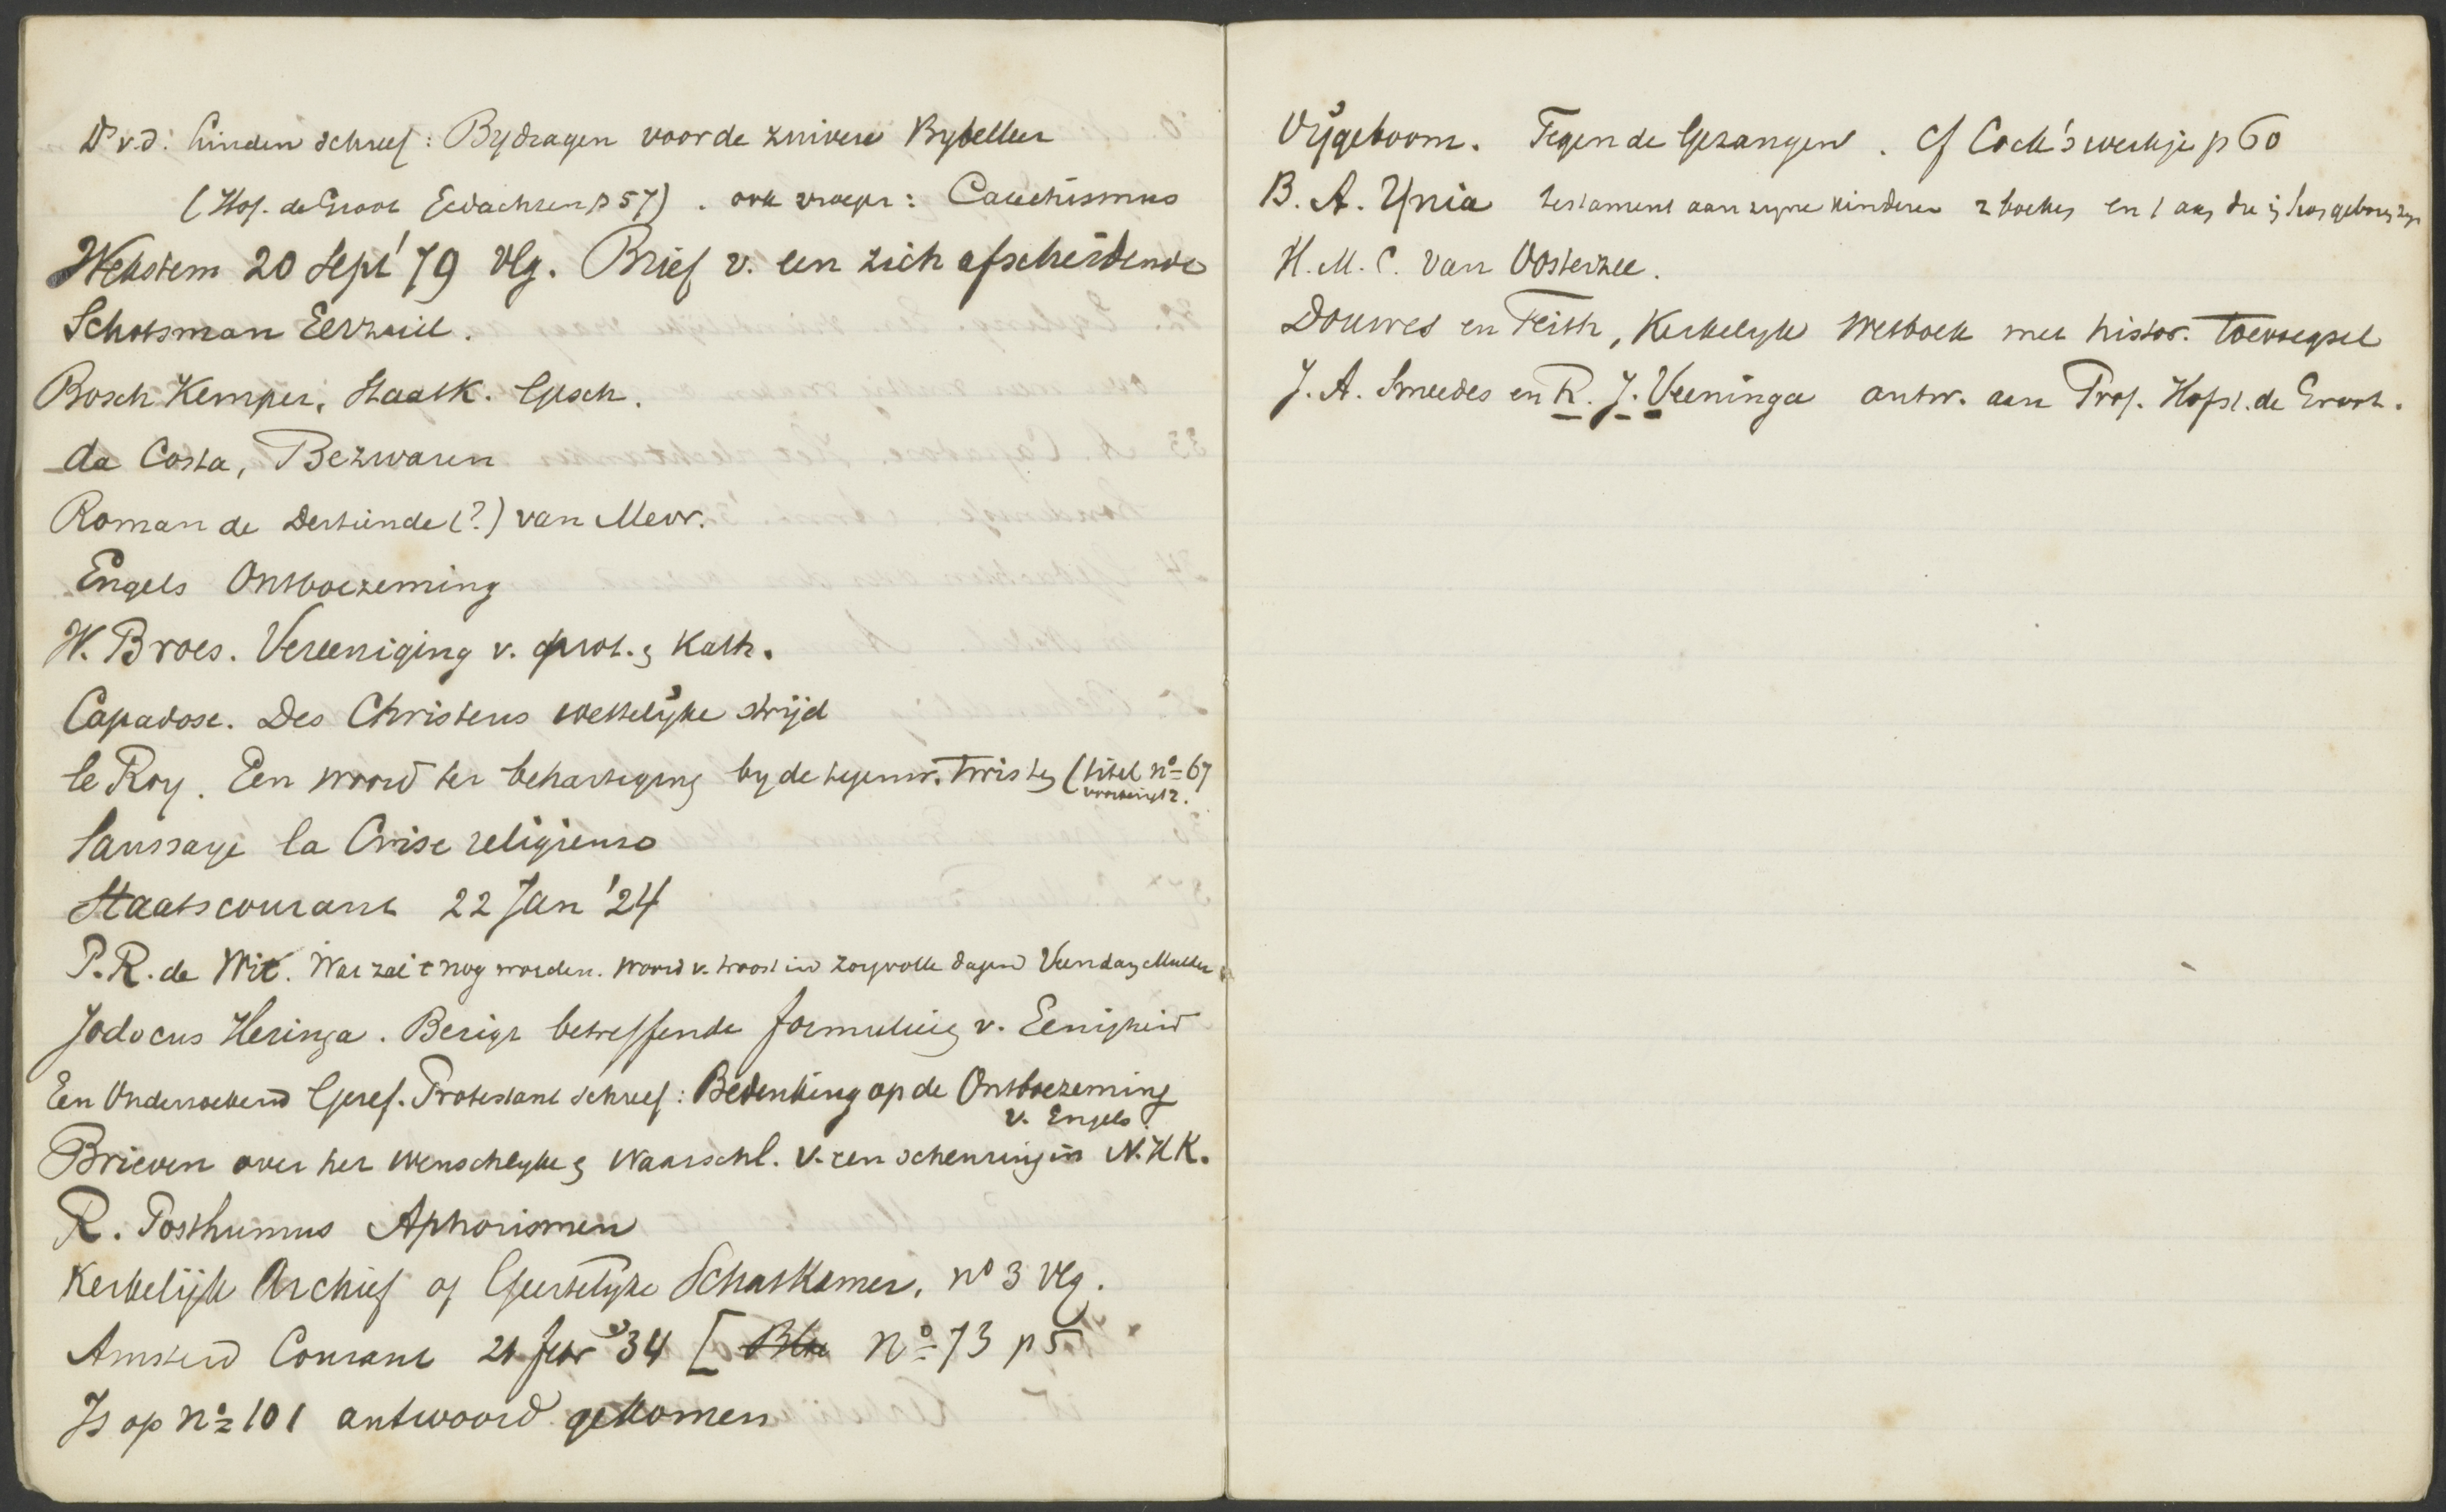 Ds v.d. Linden schreef: Bydragen voor de zuivere Bybelleer
(Hof. de Groot Gedachten p 57). ook vroeger: Catechismus
Wekstem 20 Sept '79 vlg. Brief v. een zich afscheidende
Schotsman Eerzuil.
Bosch Kemper, Staatk. Gesch.
da Costa, Bezwaren
Roman de Destinde (?) van Mevr.
Engels Ontboezeming
W. Broes. Vereeniging v. prot. & Kath.
Capadose. Des Christens wettelijke strijd
le Roy. Een woord ter behartiging by de tegenw. twisten (titel no 67
voorberigt 2.
Saussaye la Crise religieuse
Staatscourant 22 Jan '24
P.R. de Wit. Wat zal 't nog worden. Woord v. troost in zorgvolle dagen Veendam Mulder
Jodocus Heringa. Berigt betreffende formulier v. Eenigheid
Een Onderzoekend Geref. Protestant schreef: Bedenking op de Ontboezeming
v. Engels.
Brieven over het wenschelyke & Waarschl. v. een scheuring in N.H.K.
R. Posthumus Aphorismen
Kerkelijk Archief of Geestelyke Schatkamer, no 3 vlg.
Amsterd Courant 21 febr '34 [ no 73 p 5
Is op no 101 antwoord gekomen
Vijgeboom. Tegen de Gezangen. cf Cock's werkje p 60
B. A. Ynia testament aan zyne kinderen 2 boeken en 1 aan die
H. M. C. van Oosterzee.
Douwes en Feith, Kerkelyk Wetboek met histor. toevoegsel
J. A. Smeedes en R. J. Veeninga antw. aan Prof. Hofst. de Groot.